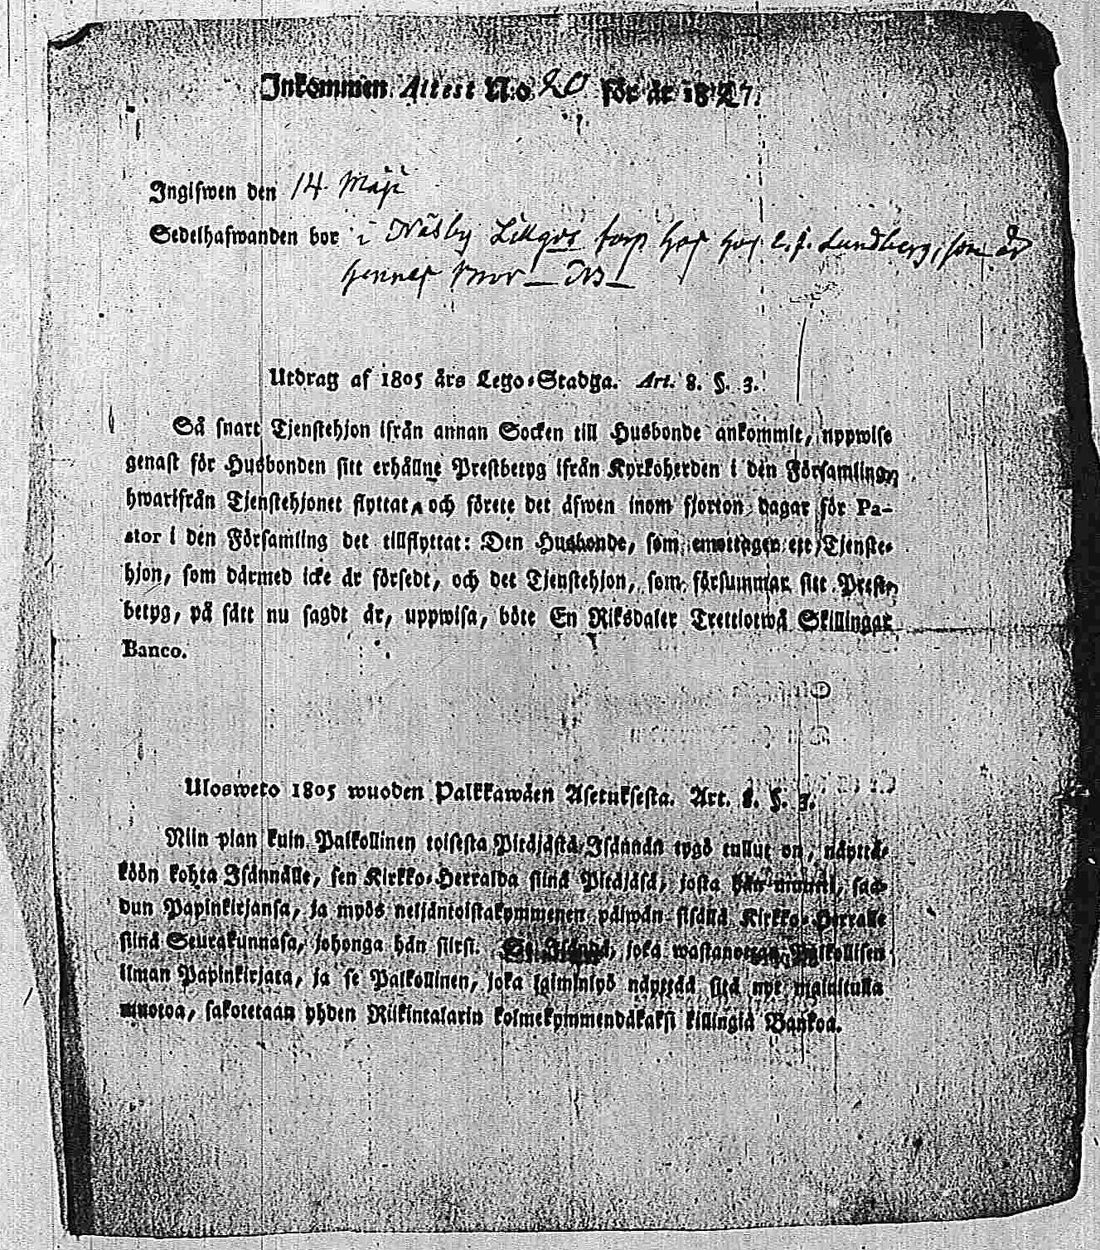 Inkommen Attest N:o 20 för år 1827.
Ingifwen den 14 Maji
Sedelhafwanden bor i Näsby Lillgos torp hos C. J. Lundberg, som är
hennes mor
Utdrag af 1805 års Lego-Stadga. Art. 8. §. 3.
Så snart Tjenstehjon ifrån annan Socken till Husbonde ankommit, uppwise
genast för Husbonden sitt erhållne Prestbetyg ifrån Kyrkoherden i den Församlingen
hwarifrån Tjenstehjonet flyttat, och förete det äfwen inom fjorton dagar för Pa-
stor i den Församling det tillflyttat: Den Husbonde, som emottager ett Tjenste-
hjon, som därmed icke är försedt, och det Tjenstehjon, som försummar sitt Preste-
betyg, på sätt nu sagdt är, uppwisa, böte En Riksdaler Trettiotwå Skillingar
Banco.
Ulosweto 1805 wuoden Palkkawäen Asetuksesta. Art. 8. §. 3.
Niin pian kuin Palkollinen toisesta Pitäjästä Isännän tygö tullut on, näyttä-
köön kohta Isännälle, sen Kirkko-Herralda siinä Pitäjäsä, josta hän muutti, saa-
dun Papinkirjansa, ja myös neljäntoistakymmenen päiwän sisällä Kirkko-Herralle
siinä Seurakunnasa, johonga hän siirsi. Se Isändä, joka wastanottaa Palkollisen
ilman Papinkirjata, ja se Palkollinen, joka laiminlyö näyttää sitä nyt mainitulla
muotoa, sakotetaan yhden Riikintalarin kolmekymmendäkaksi killingiä Bankoa.